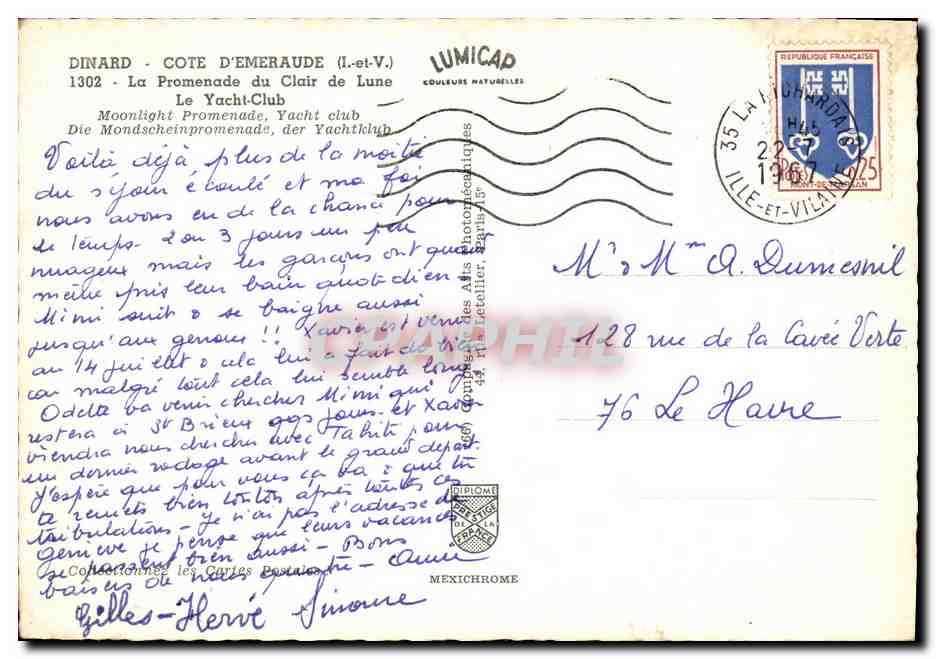 DINARD - COTE D'EMERAUDE (I.-et-V.)
1302 - La Promenade du Clair de Lune
Le Yacht-Club
Moonlight Promenade, Yacht club
Die Mondscheinpromenade, der Yachtklub
LUMICAP
COULEURS NATURELLES
REPUBLIQUE FRANÇAISE
0,25
MONT-DE-MARSAN
35 LA RICHARDAIS
H45
22-7
1967
ILLE-ET-VILAINE
Voilà déjà plus de la moitié
du séjour écoulé et ma foi
nous avons eu de la chance pour
le temps. 2 ou 3 jours un peu
nuageux mais les garçons ont quand
même pris leur bain quotidien
Mimi suit & se baigne aussi
jusqu'aux genoux !! Xavier est venu
au 14 juillet & cela lui a fait du bien
car malgré tout cela lui semble long.
Odette va venir chercher Mimi qui
restera à St Brieux qqs jours et Xavier
viendra nous chercher avec Tahiti pour
un dernier rodage avant le grand départ.
J'espère que pour vous ça va & que tu
te remets bien tontôn après toutes ces
tribulations - Je n'ai pas l'adresse de
Geneviève je pense que leurs vacances
se passent bien aussi - Bons
baisers de nous quatre - Anne
Gilles - Hervé Simone
Collectionnez les Cartes Postales
(66) Compagnie des Arts Photomécaniques
42, rue Letellier, Paris-15e
CPAPHIL
Mr & Mme A. Dumesnil
128 rue de la Cavée Verte
76 Le Havre
DIPLOME
PRESTIGE
DE LA
FRANCE
MEXICHROME